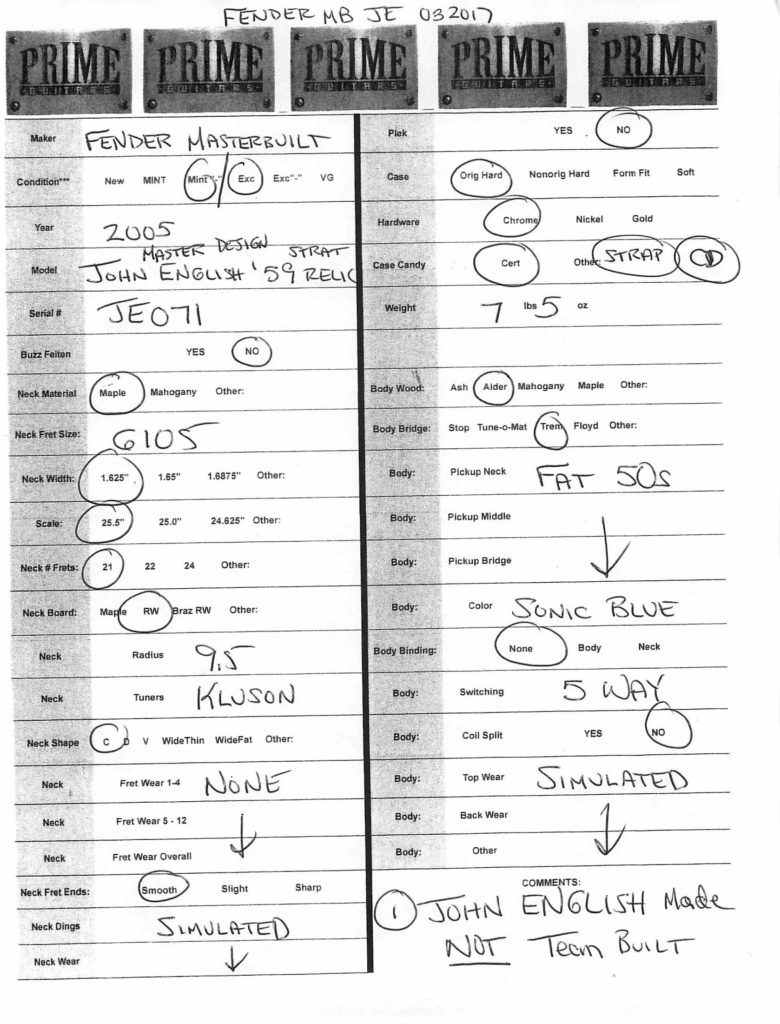 FENDER MB JE 032017
PRIME PRIME PRIME PRIME PRIME
GUITARS GUITARS GUITARS GUITARS GUITARS
Maker FENDER MASTERBUILT
Condition*** New MINT Mint"-" / Exc Exc"-" VG
Year 2005
MASTER DESIGN STRAT
Model JOHN ENGLISH '59 RELIC
Serial # JE071
Buzz Feiten YES NO
Neck Material Maple Mahogany Other:
Neck Fret Size: 6105
Neck Width: 1.625" 1.65" 1.6875" Other:
Scale: 25.5" 25.0" 24.625" Other:
Neck # Frets: 21 22 24 Other:
Neck Board: Maple RW Braz RW Other:
Neck Radius 9.5
Neck Tuners KLUSON
Neck Shape C D V WideThin WideFat Other:
Neck Fret Wear 1-4 NONE
Neck Fret Wear 5 - 12
Neck Fret Wear Overall
Neck Fret Ends: Smooth Slight Sharp
Neck Dings SIMULATED
Neck Wear
Plek YES NO
Case Orig Hard Nonorig Hard Form Fit Soft
Hardware Chrome Nickel Gold
Case Candy Cert Other: STRAP CD
Weight 7 lbs 5 oz
Body Wood: Ash Alder Mahogany Maple Other:
Body Bridge: Stop Tune-o-Mat Trem Floyd Other:
Body: Pickup Neck FAT 50s
Body: Pickup Middle
Body: Pickup Bridge
Body: Color SONIC BLUE
Body Binding: None Body Neck
Body: Switching 5 WAY
Body: Coil Split YES NO
Body: Top Wear SIMULATED
Body: Back Wear
Body: Other
COMMENTS:
1 JOHN ENGLISH Made
NOT Team BUILT